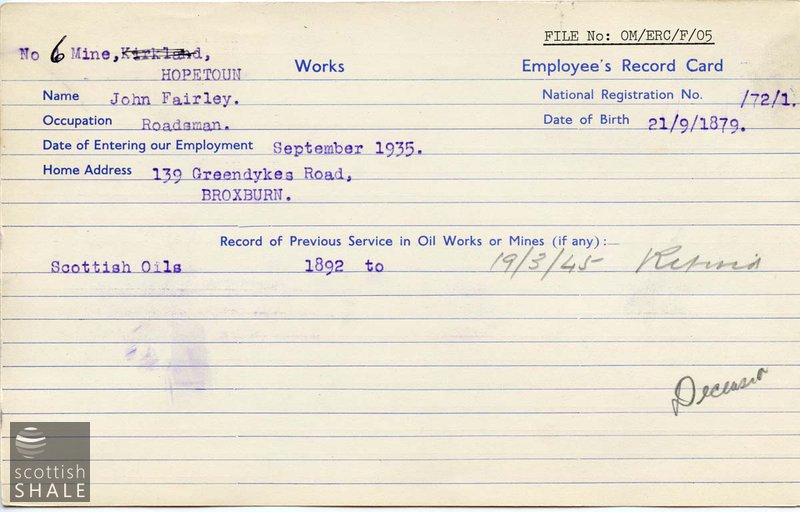 FILE No: OM/ERC/F/05
No 6 Mine, Kirkland,
HOPETOUN Works Employee's Record Card
Name John Fairley. National Registration No. /72/1.
Occupation Roadsman. Date of Birth 21/9/1879.
Date of Entering our Employment September 1935.
Home Address 139 Greendykes Road,
BROXBURN.
Record of Previous Service in Oil Works or Mines (if any):—
Scottish Oils 1892 to 19/3/45 Retired
Deceased
scottish
SHALE